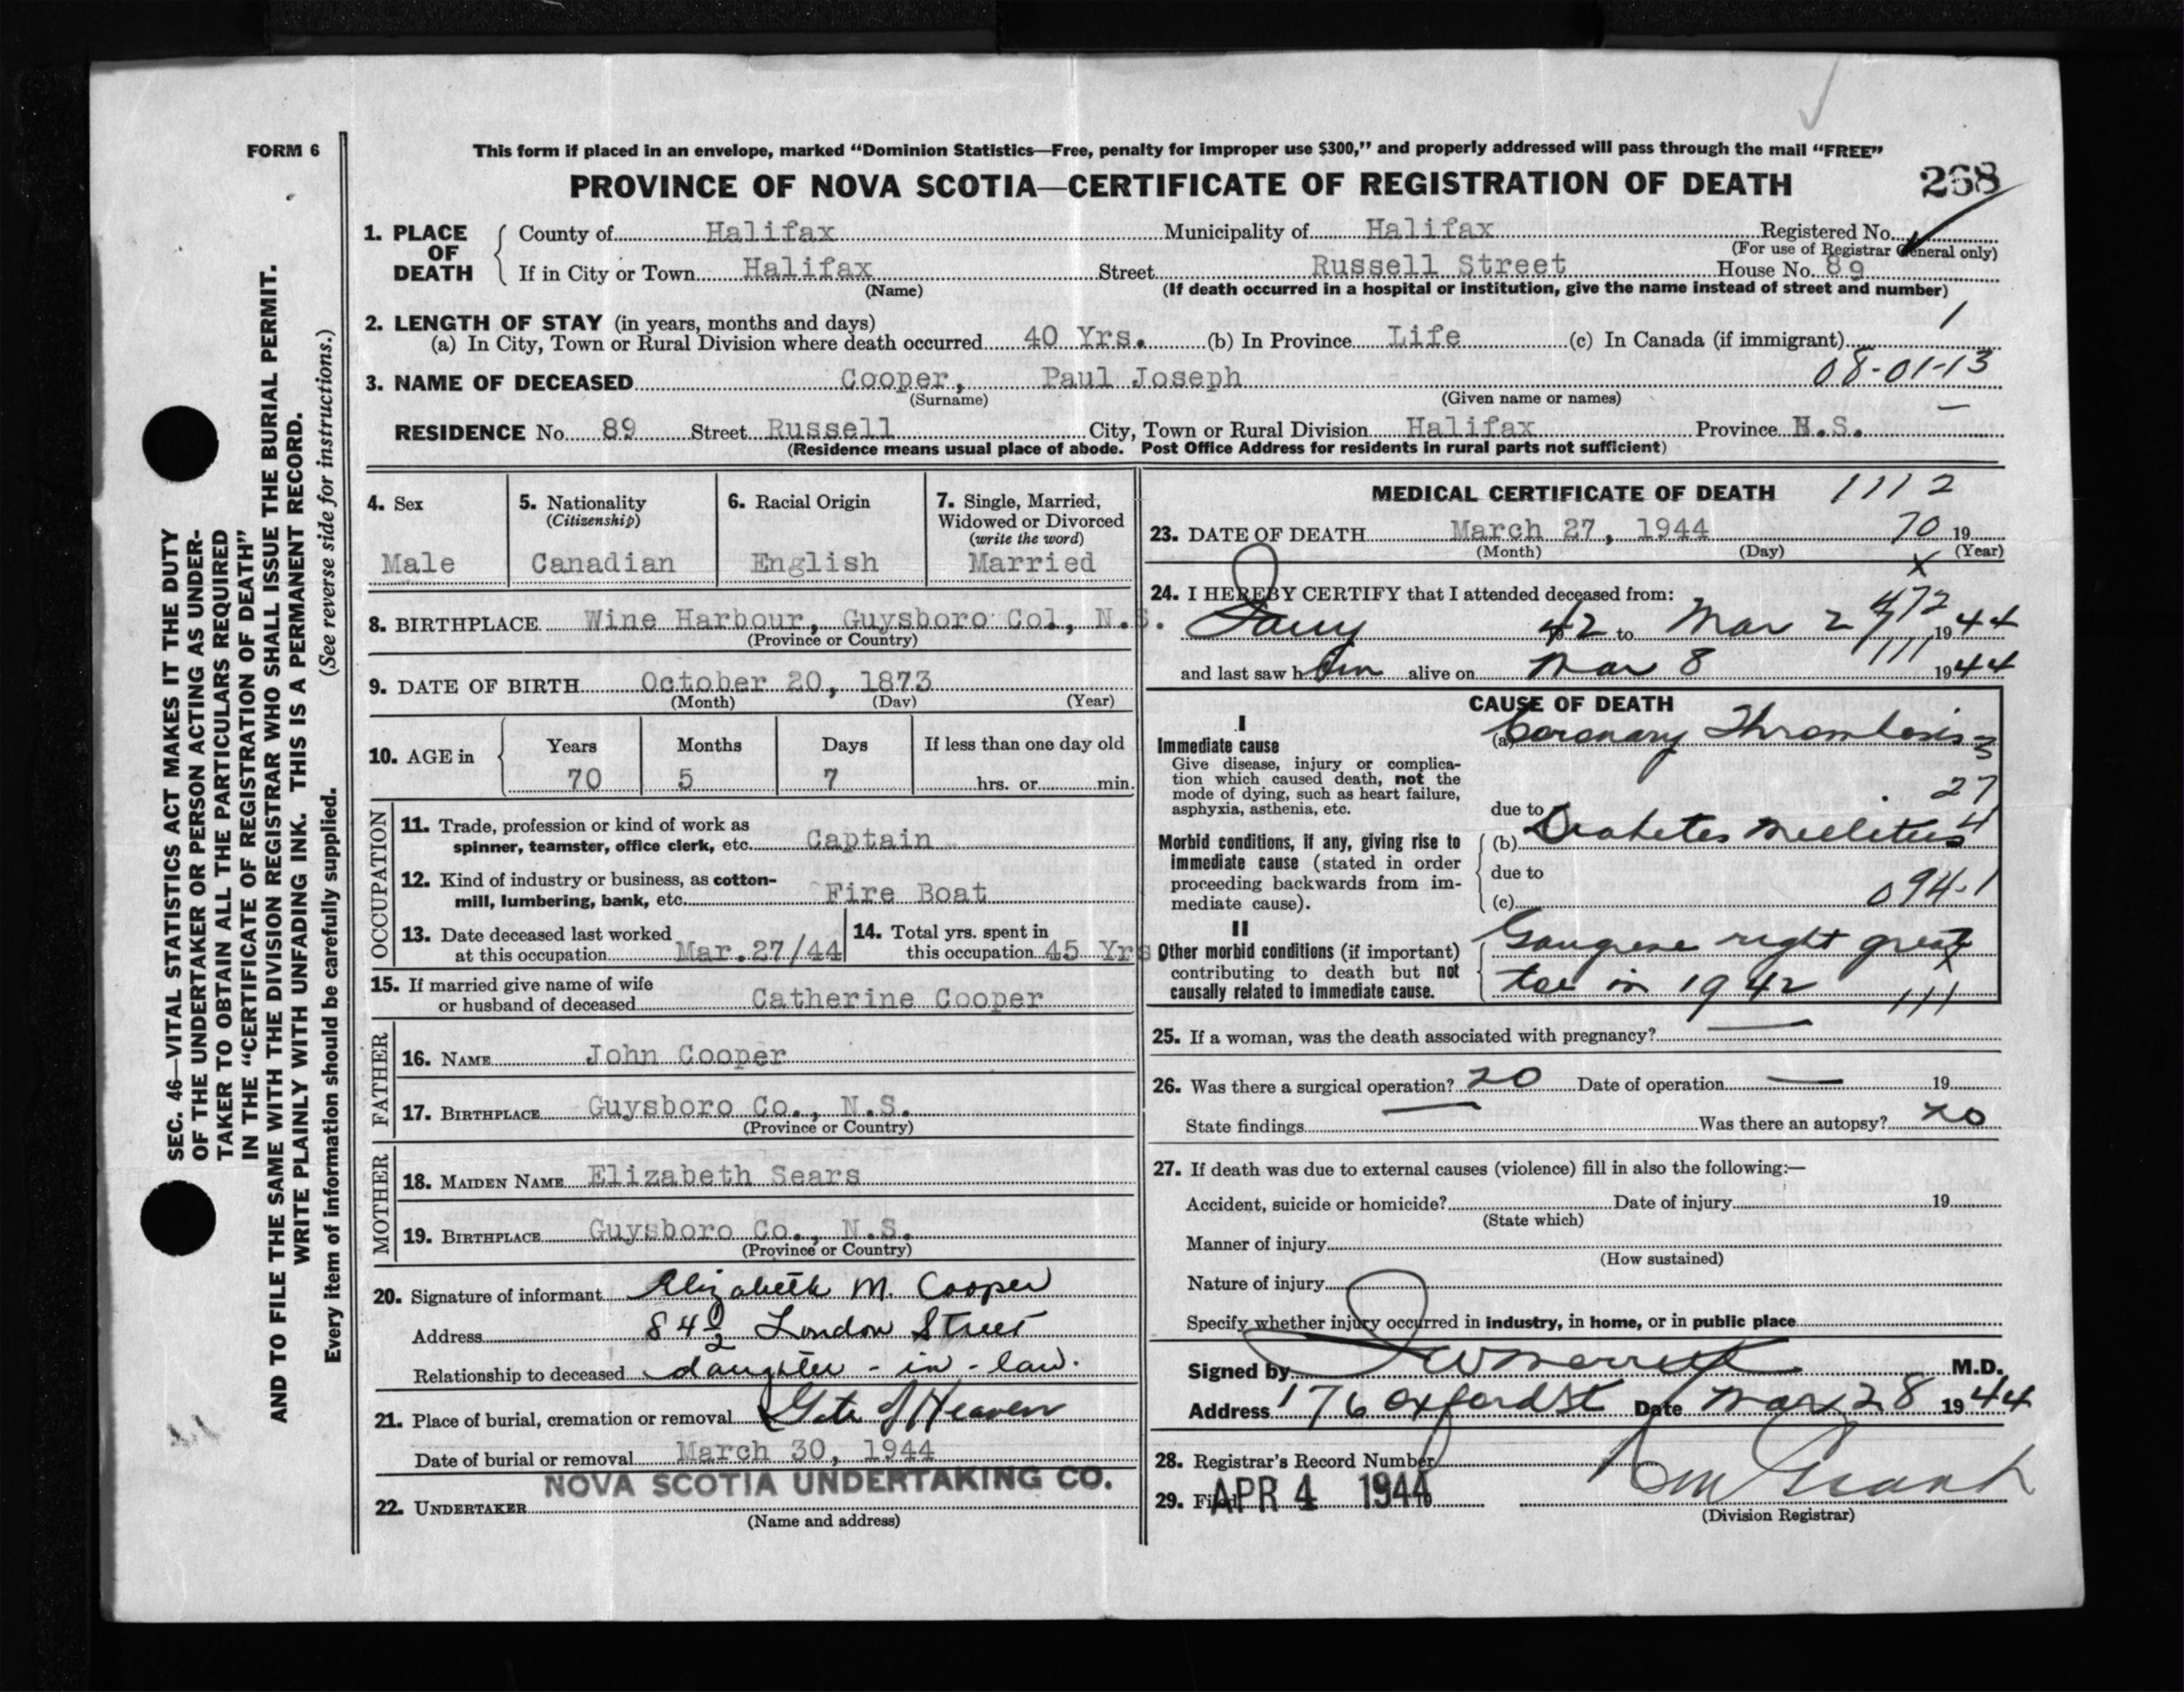 FORM 6
This form if placed in an envelope, marked "Dominion Statistics—Free, penalty for improper use $300," and properly addressed will pass through the mail "FREE"
PROVINCE OF NOVA SCOTIA—CERTIFICATE OF REGISTRATION OF DEATH 268
1. PLACE OF DEATH
County of Halifax Municipality of Halifax Registered No.
(For use of Registrar General only)
If in City or Town Halifax Street Russell Street House No. 89
(Name) (If death occurred in a hospital or institution, give the name instead of street and number)
2. LENGTH OF STAY (in years, months and days) 1
(a) In City, Town or Rural Division where death occurred 40 Yrs. (b) In Province Life (c) In Canada (if immigrant)
08-01-13
3. NAME OF DECEASED Cooper, Paul Joseph
(Surname) (Given name or names)
RESIDENCE No. 89 Street Russell City, Town or Rural Division Halifax Province N.S.
(Residence means usual place of abode. Post Office Address for residents in rural parts not sufficient)
4. Sex
Male
5. Nationality
(Citizenship)
Canadian
6. Racial Origin
English
7. Single, Married,
Widowed or Divorced
(write the word)
Married
8. BIRTHPLACE Wine Harbour, Guysboro Col., N.S.
(Province or Country)
9. DATE OF BIRTH October 20, 1873
(Month) (Day) (Year)
10. AGE in
Years Months Days If less than one day old
70 5 7 hrs. or min.
OCCUPATION
11. Trade, profession or kind of work as
spinner, teamster, office clerk, etc. Captain
12. Kind of industry or business, as cotton-
mill, lumbering, bank, etc. Fire Boat
13. Date deceased last worked
at this occupation Mar.27/44
14. Total yrs. spent in
this occupation 45 Yrs
15. If married give name of wife
or husband of deceased Catherine Cooper
FATHER
16. NAME John Cooper
17. BIRTHPLACE Guysboro Co., N.S.
(Province or Country)
MOTHER
18. MAIDEN NAME Elizabeth Sears
19. BIRTHPLACE Guysboro Co., N.S.
(Province or Country)
20. Signature of informant Elizabeth M. Cooper
Address 84½ London Street
Relationship to deceased daughter-in-law.
21. Place of burial, cremation or removal Gate of Heaven
Date of burial or removal March 30, 1944
NOVA SCOTIA UNDERTAKING CO.
22. UNDERTAKER
(Name and address)
MEDICAL CERTIFICATE OF DEATH 1112
23. DATE OF DEATH March 27, 1944 70 19
(Month) (Day) (Year)
x
24. I HEREBY CERTIFY that I attended deceased from:
42 to Mar 2 1944
and last saw him alive on Mar 8 111 1944
CAUSE OF DEATH
I
Immediate cause
Give disease, injury or complica-
tion which caused death, not the
mode of dying, such as heart failure,
asphyxia, asthenia, etc.
(a) Coronary Thrombosis 3
27
due to
Morbid conditions, if any, giving rise to
immediate cause (stated in order
proceeding backwards from im-
mediate cause).
(b) Diabetes Mellitus 4
due to
(c) 094-1
II
Other morbid conditions (if important)
contributing to death but not
causally related to immediate cause.
Gangrene right great
toe in 1942 111
25. If a woman, was the death associated with pregnancy? —
26. Was there a surgical operation? no Date of operation — 19
State findings — Was there an autopsy? no
27. If death was due to external causes (violence) fill in also the following:—
Accident, suicide or homicide? Date of injury 19
(State which)
Manner of injury
(How sustained)
Nature of injury
Specify whether injury occurred in industry, in home, or in public place
Signed by M.D.
Address 176 Oxford St Date Mar 28 1944
28. Registrar's Record Number
29. Filed APR 4 1944
(Division Registrar)
SEC. 46—VITAL STATISTICS ACT MAKES IT THE DUTY
OF THE UNDERTAKER OR PERSON ACTING AS UNDER-
TAKER TO OBTAIN ALL THE PARTICULARS REQUIRED
IN THE "CERTIFICATE OF REGISTRATION OF DEATH"
AND TO FILE THE SAME WITH THE DIVISION REGISTRAR WHO SHALL ISSUE THE BURIAL PERMIT.
WRITE PLAINLY WITH UNFADING INK. THIS IS A PERMANENT RECORD.
Every item of information should be carefully supplied. (See reverse side for instructions.)